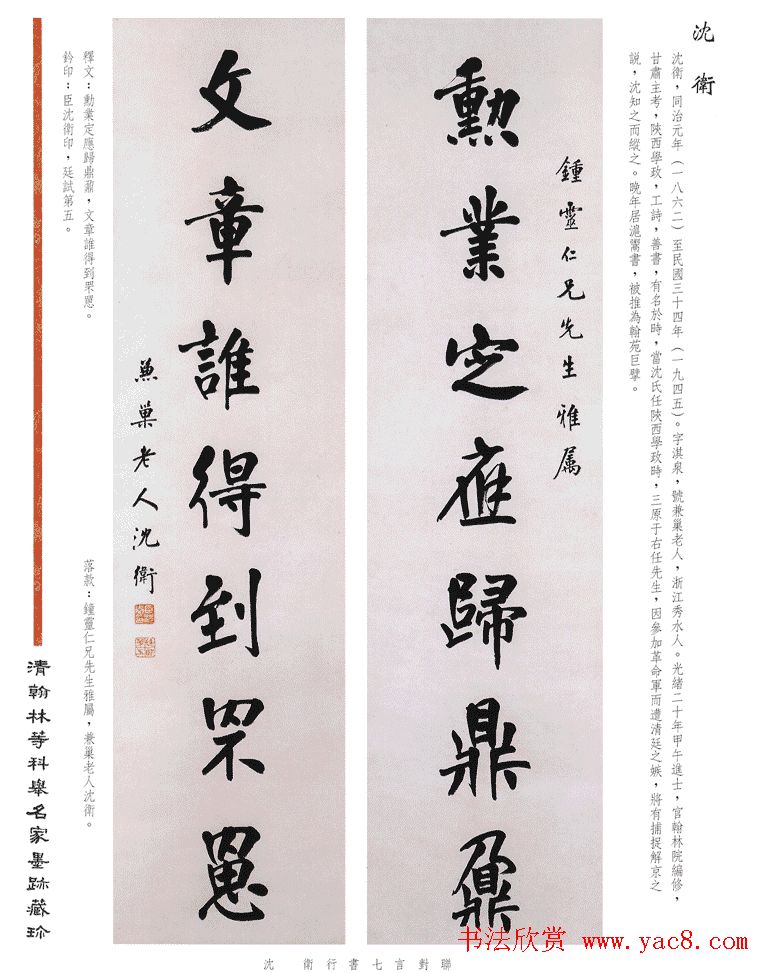 沈衛
沈衛，同治元年（一八六二）至民國三十四年（一九四五）。字淇泉，號兼巢老人，浙江秀水人。光緒二十年甲午進士，官翰林院編修，
甘肅主考，陝西學政，工詩，善書，有名於時，當沈氏任陝西學政時，三原于右任先生，因參加革命軍而遭清廷之嫉，將有捕捉解京之
説，沈知之而縱之。晚年居滬鬻書，被推為翰苑巨擘。
鍾靈仁兄先生雅属
勳業定應歸鼎鼐
文章誰得到罘罳
兼巢老人沈衛
釋文：勳業定應歸鼎鼐，文章誰得到罘罳。
鈐印：臣沈衛印，廷試第五。
落款：鐘靈仁兄先生雅屬，兼巢老人沈衛。
清翰林等科舉名家墨跡藏珍
沈衛行書七言對聯
书法欣赏 www.yac8.com